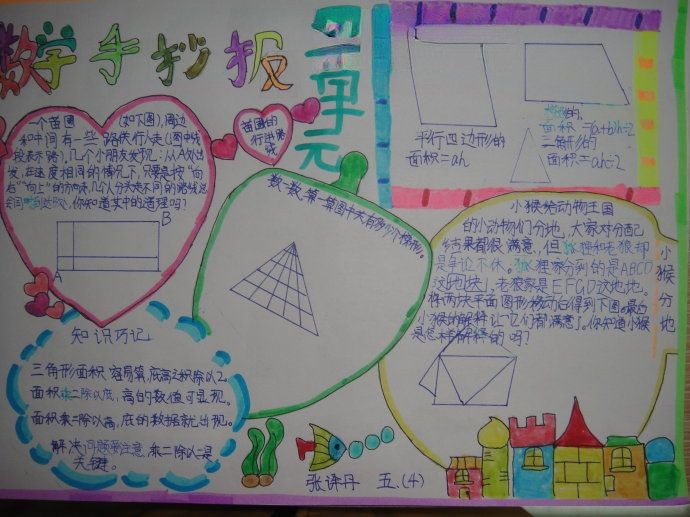 数学手抄报
四单元
一个苗圃(如下图),周边
和中间有一些路供行人走(图中线
段表示路),几个小朋友发现:从A处出
发,在速度相同的情况下,只要是按“向
右”“向上”的方向走,几个人分头走不同的路线总
会同时到达B处,你知道其中的道理吗?
B
A
苗圃的
行进路
线
平行四边形的
面积=ah
梯形的
面积=(a+b)h÷2
三角形的
面积=ah÷2
数一数,第一集图中共有多少个梯形。
小猴分地
小猴给动物王国
的小动物们分地,大家对分配
结果都很满意,但狐狸和老狼却
是争论不休。狐狸家分到的是ABCD
这地块,老狼家是EFGD这地地。
将两块平面图形移动后得到下图。最后
小猴的解释让它们都满意了。你知道小猴
是怎样解释的吗?
知识巧记
三角形面积容易算,底高之积除以2。
面积乘二除以底,高的数值可显现。
面积乘二除以高,底的数据就出现。
解决问题要注意,乘二除以二是
关键。
张译丹 五.(4)